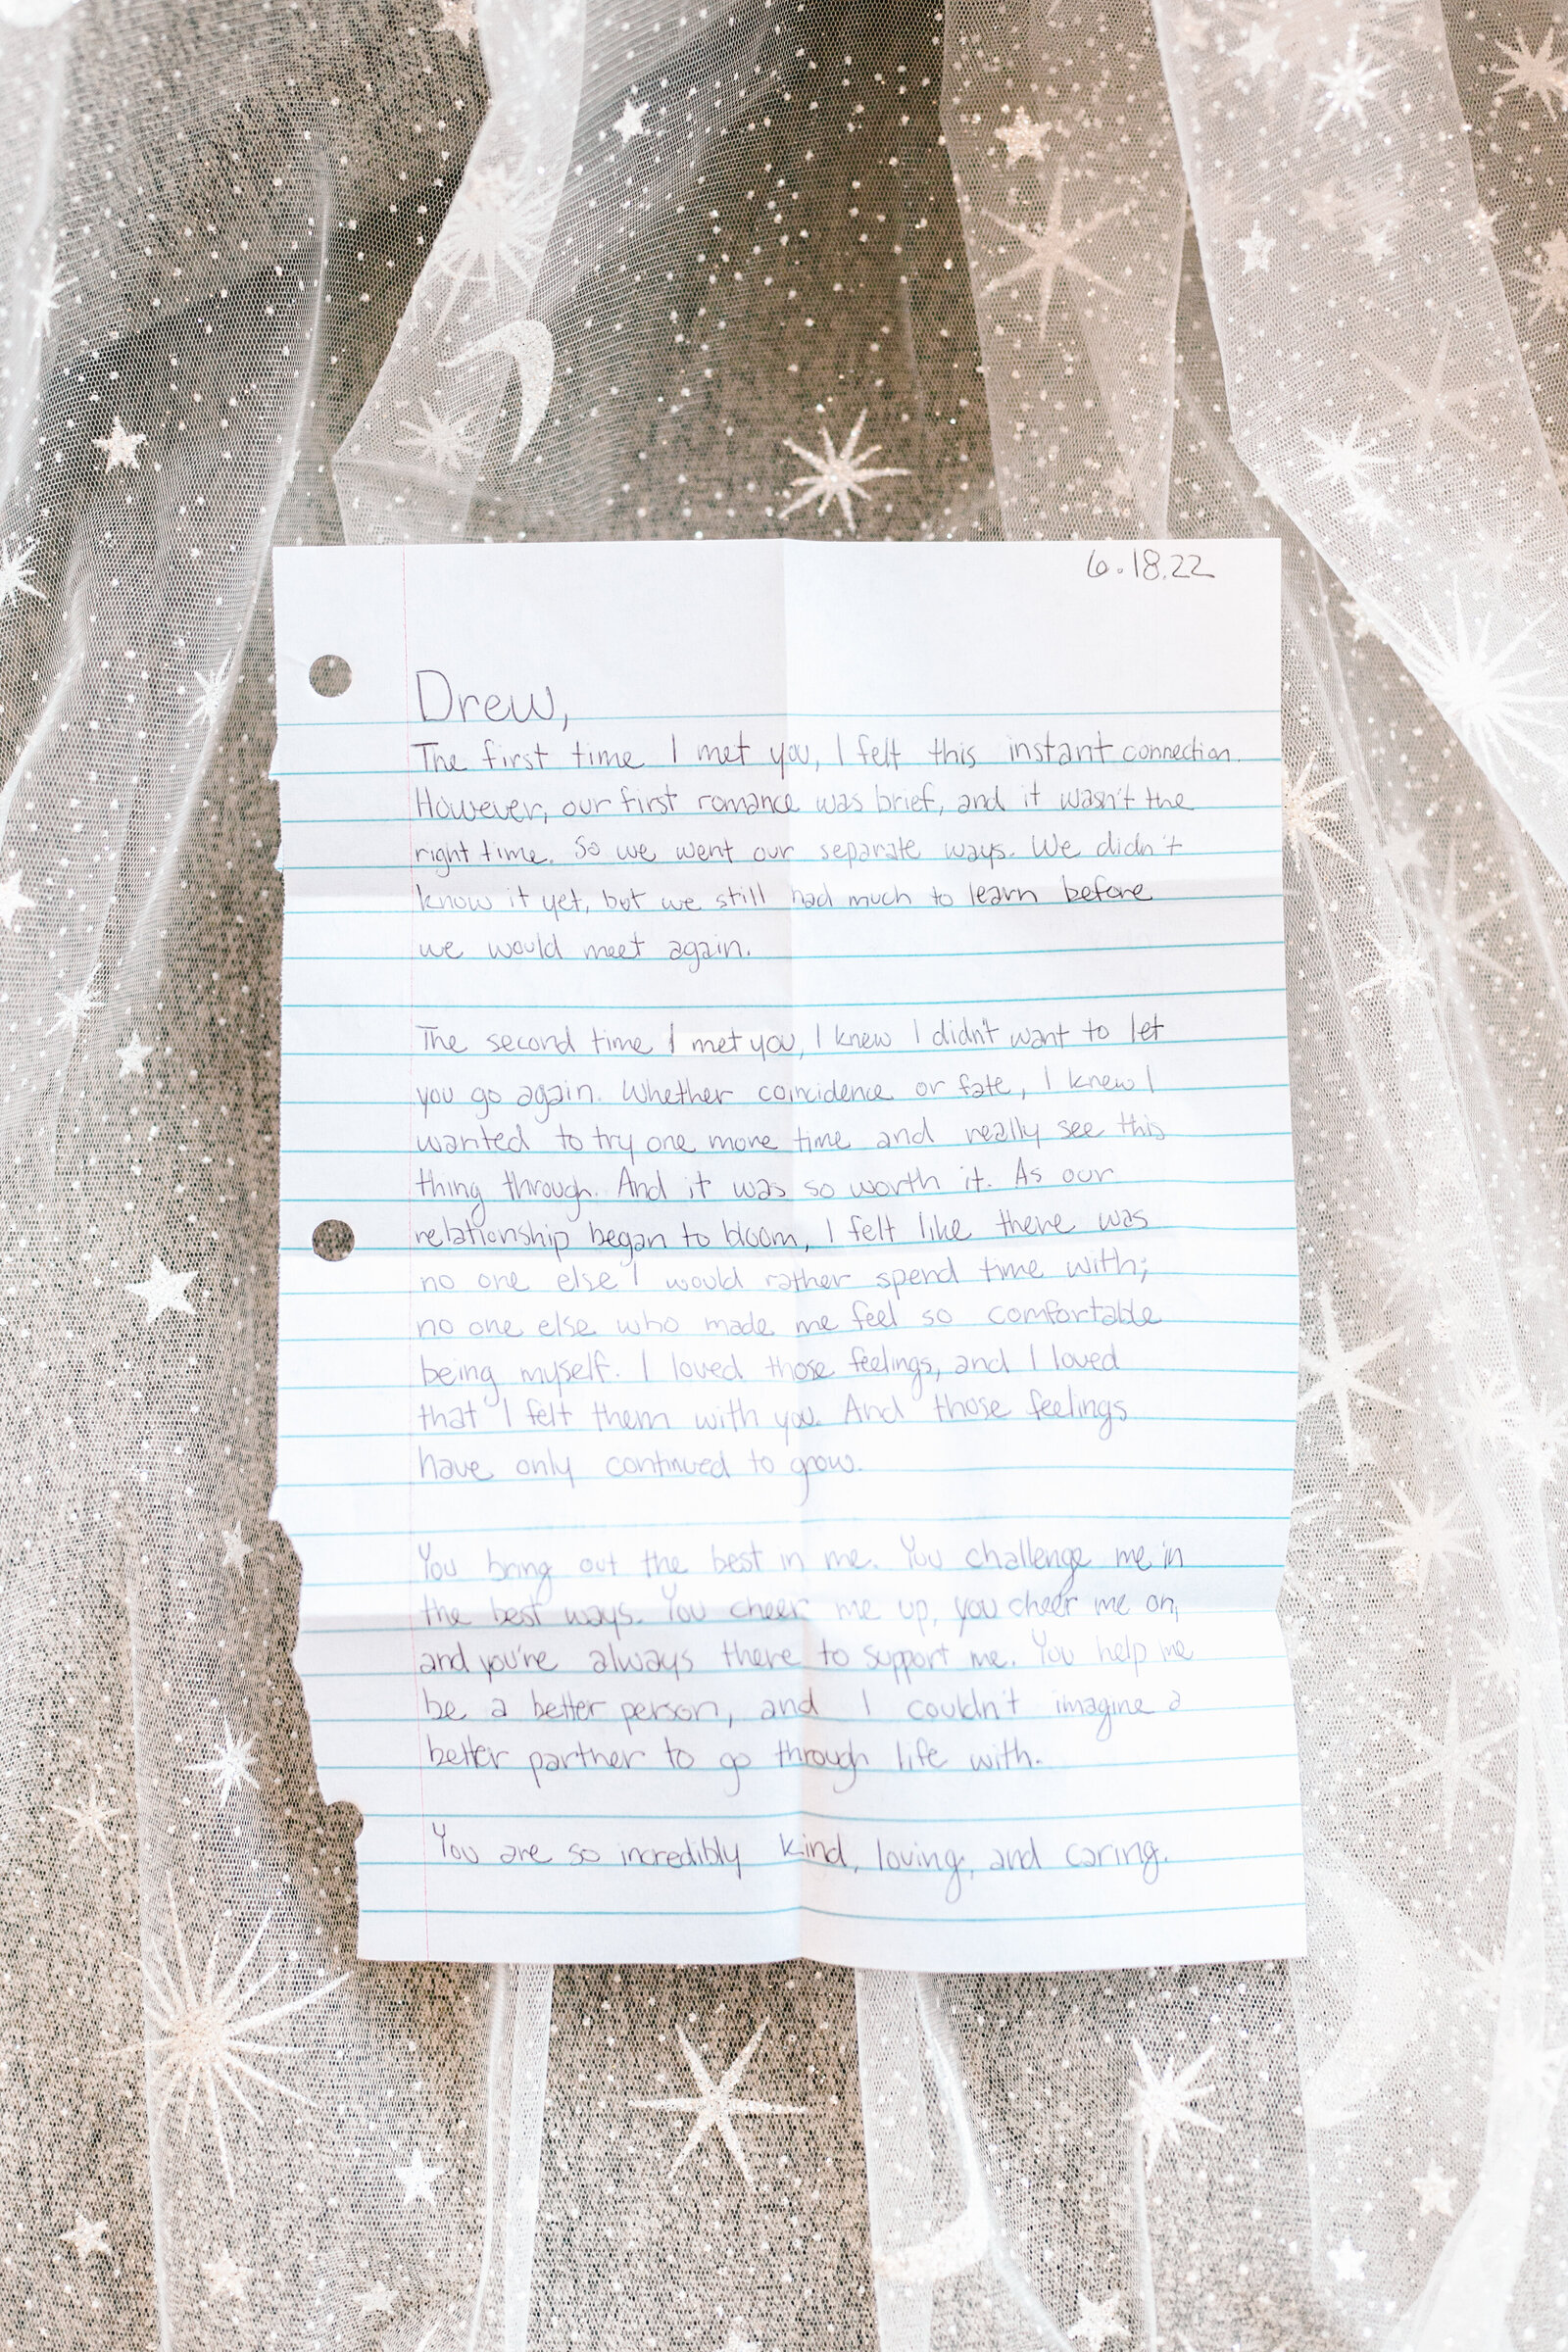 6.18.22
Drew,
The first time I met you, I felt this instant connection.
However, our first romance was brief, and it wasn't the
right time. So we went our separate ways. We didn't
know it yet, but we still had much to learn before
we would meet again.
The second time I met you, I knew I didn't want to let
you go again. Whether coincidence or fate, I knew I
wanted to try one more time and really see this
thing through. And it was so worth it. As our
relationship began to bloom, I felt like there was
no one else I would rather spend time with;
no one else who made me feel so comfortable
being myself. I loved those feelings, and I loved
that I felt them with you. And those feelings
have only continued to grow.
You bring out the best in me. You challenge me in
the best ways. You cheer me up, you cheer me on,
and you're always there to support me. You help me
be a better person, and I couldn't imagine a
better partner to go through life with.
You are so incredibly kind, loving, and caring.